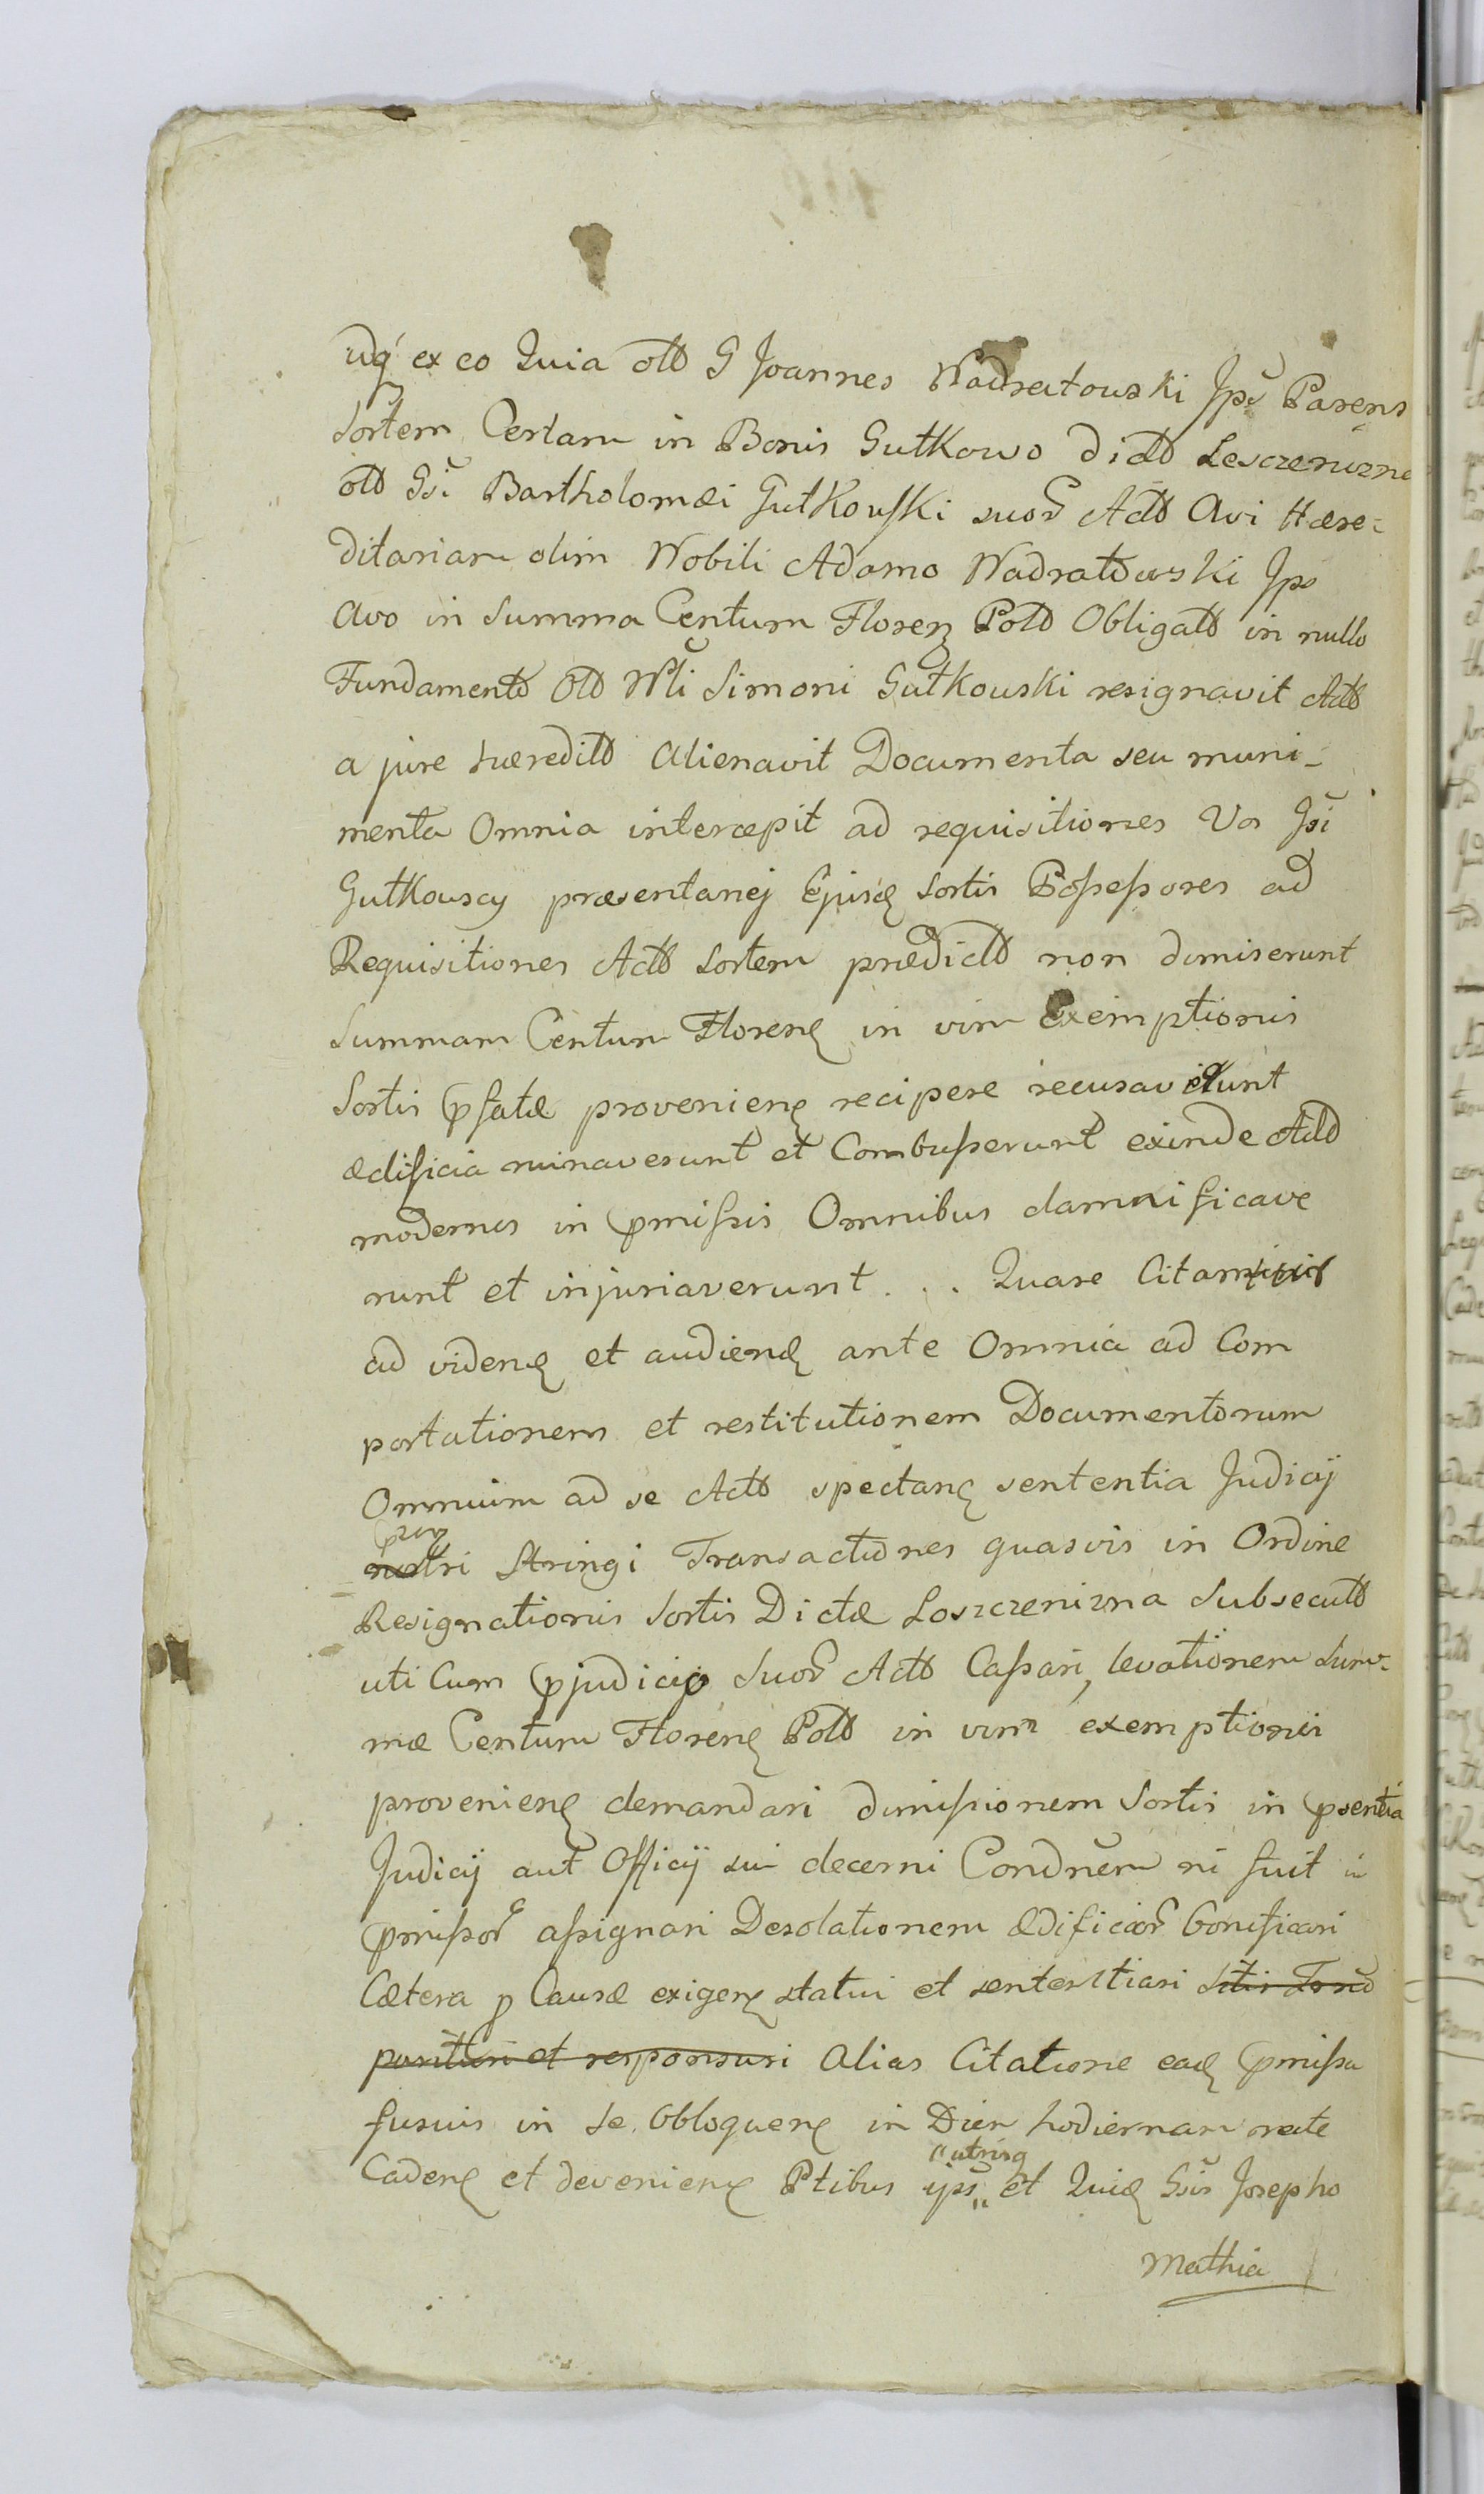 idq́ ex eo Quia olb G Joannes Wadratowski Jps̃ Parens
sortem Certam in Bonis Gutkowo dictb Lesczenizna
olb Gsi Bartholomæi Gutkowski suor̃ Actb Avi Hære-
ditariam olim Nobili Adamo Wadratowski Jps
Avo in Summa Centum Floren Polb Obligatb in nullo
Fundamento Olb Nli Simoni Gutkowski resignavit Actb
a jure hæreditb Alienavit Documenta seu muni-
menta Omnia intercepit ad requisitiones Vos Gsi
Gutkowscy præsentanej Ejusd Sortis Possessores ad
Requisitiones Actb sortem prædictb non dimiserunt
Summam Centum Floren in vim Exemptionis
Sortis pfatæ provenien recipere recusaverunt
ædificia ruinaverunt et Combusserunt exinde Actb
modernos in pmissis Omnibus damnificave
runt et injuriaverunt . . . Quare Citamini
ad vidend et audiend ante Omnia ad Com
portationem et restitutionem Documentorum
Omnium ad se Actb spectan sententia Judicij
pren
nostri Stringi Transactiones quasvis in Ordine
Resignationis Sortis Dictæ Loszczenizna Subsecutb
uti Cum pjudicijo Suor̃ Actb Cassari, levationem Sum-
mæ Centum Floren Polb in vim exemptionis
provenien demandari dimissionem Sortis in psentia
Judicij aut Officij sui decerni Condnem ni fuit in
pmissor̃ assignari Desolationem ædificior̃ bonificari
Cætera p Causæ exigen statui et sententiari sitis Term̃o
parituri et responsuri Alias Citatione ead pmissa
fusius in se obloquen in Diem hodiernam recte
"utrinq
Caden et devenien Ptibus ips̃ " et Quid Gsis Josepho
Mathia